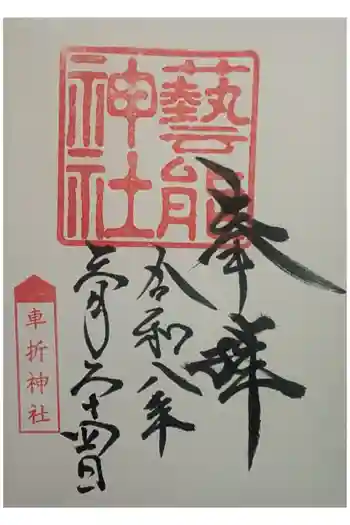 藝能
神社
奉拝
令和八年
三月二十四日
車折神社